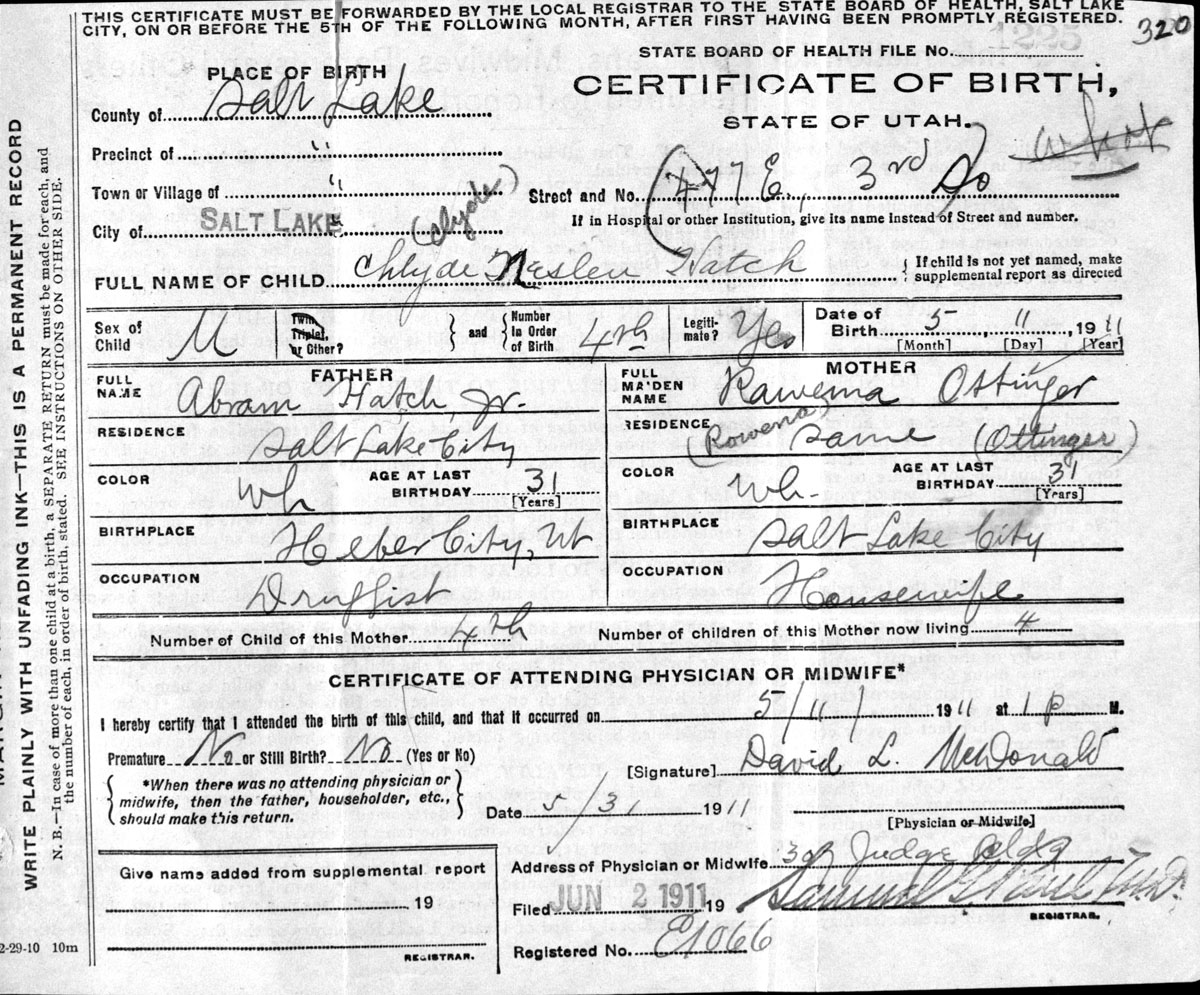 THIS CERTIFICATE MUST BE FORWARDED BY THE LOCAL REGISTRAR TO THE STATE BOARD OF HEALTH, SALT LAKE
CITY, ON OR BEFORE THE 5TH OF THE FOLLOWING MONTH, AFTER FIRST HAVING BEEN PROMPTLY REGISTERED.
320
STATE BOARD OF HEALTH FILE No.
PLACE OF BIRTH
CERTIFICATE OF BIRTH,
STATE OF UTAH.
County of Salt Lake
Precinct of "
Town or Village of "
Street and No. (477 E, 3rd So
If in Hospital or other Institution, give its name instead of Street and number.
City of SALT LAKE (Clyde)
FULL NAME OF CHILD Chlyde Neslen Hatch { If child is not yet named, make
supplemental report as directed
Sex of Child M
Twin, Triplet, or Other? } and { Number in Order of Birth 4th
Legiti-mate? Yes
Date of Birth 5 11, 1911
[Month] [Day] [Year]
FATHER
FULL NAME Abram Hatch, Jr.
RESIDENCE Salt Lake City
COLOR Wh AGE AT LAST BIRTHDAY 31
[Years]
BIRTHPLACE Heber City, Ut
OCCUPATION Druggist
MOTHER
FULL MAIDEN NAME Rawenna Ottinger
RESIDENCE (Rowena) Same (Ottinger)
COLOR Wh- AGE AT LAST BIRTHDAY 31
[Years]
BIRTHPLACE Salt Lake City
OCCUPATION Housewife
Number of Child of this Mother 4th Number of children of this Mother now living 4
CERTIFICATE OF ATTENDING PHYSICIAN OR MIDWIFE*
I hereby certify that I attended the birth of this child, and that it occurred on 5/11/ 1911 at 1 P M.
Premature No or Still Birth? No (Yes or No)
[Signature] David L. McDonald
{ *When there was no attending physician or
midwife, then the father, householder, etc.,
should make this return. }
Date 5/31 1911
[Physician or Midwife]
Address of Physician or Midwife Judge Bldg
Give name added from supplemental report
19
REGISTRAR.
Filed JUN 2 1911 19
Samuel G. Paul M.D.
REGISTRAR.
Registered No. E1066
WRITE PLAINLY WITH UNFADING INK—THIS IS A PERMANENT RECORD
N. B.—In case of more than one child at a birth, a SEPARATE RETURN must be made for each, and
the number of each, in order of birth, stated. SEE INSTRUCTIONS ON OTHER SIDE.
2-29-10 10m